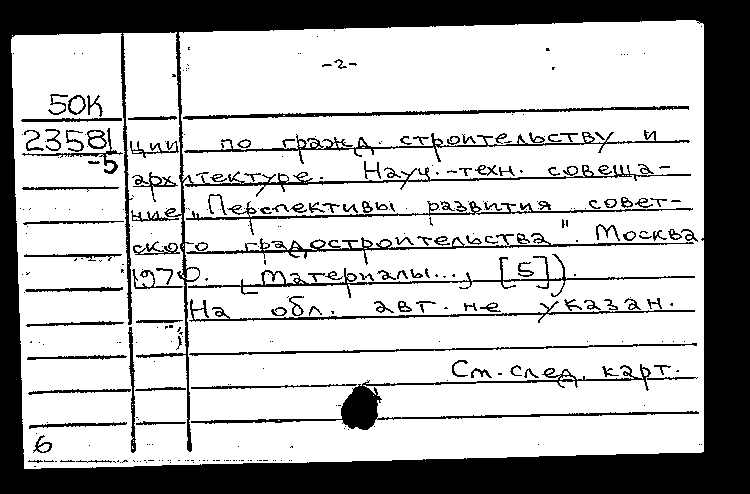 -2-
50К
23581
-5
ции по гражд. строительству и
архитектуре. Науч.-техн. совеща-
ние „Перспективы развития совет-
ского градостроительства". Москва.
1970. [Материалы..., [5]).
На обл. авт. не указан.
См. след. карт.
6